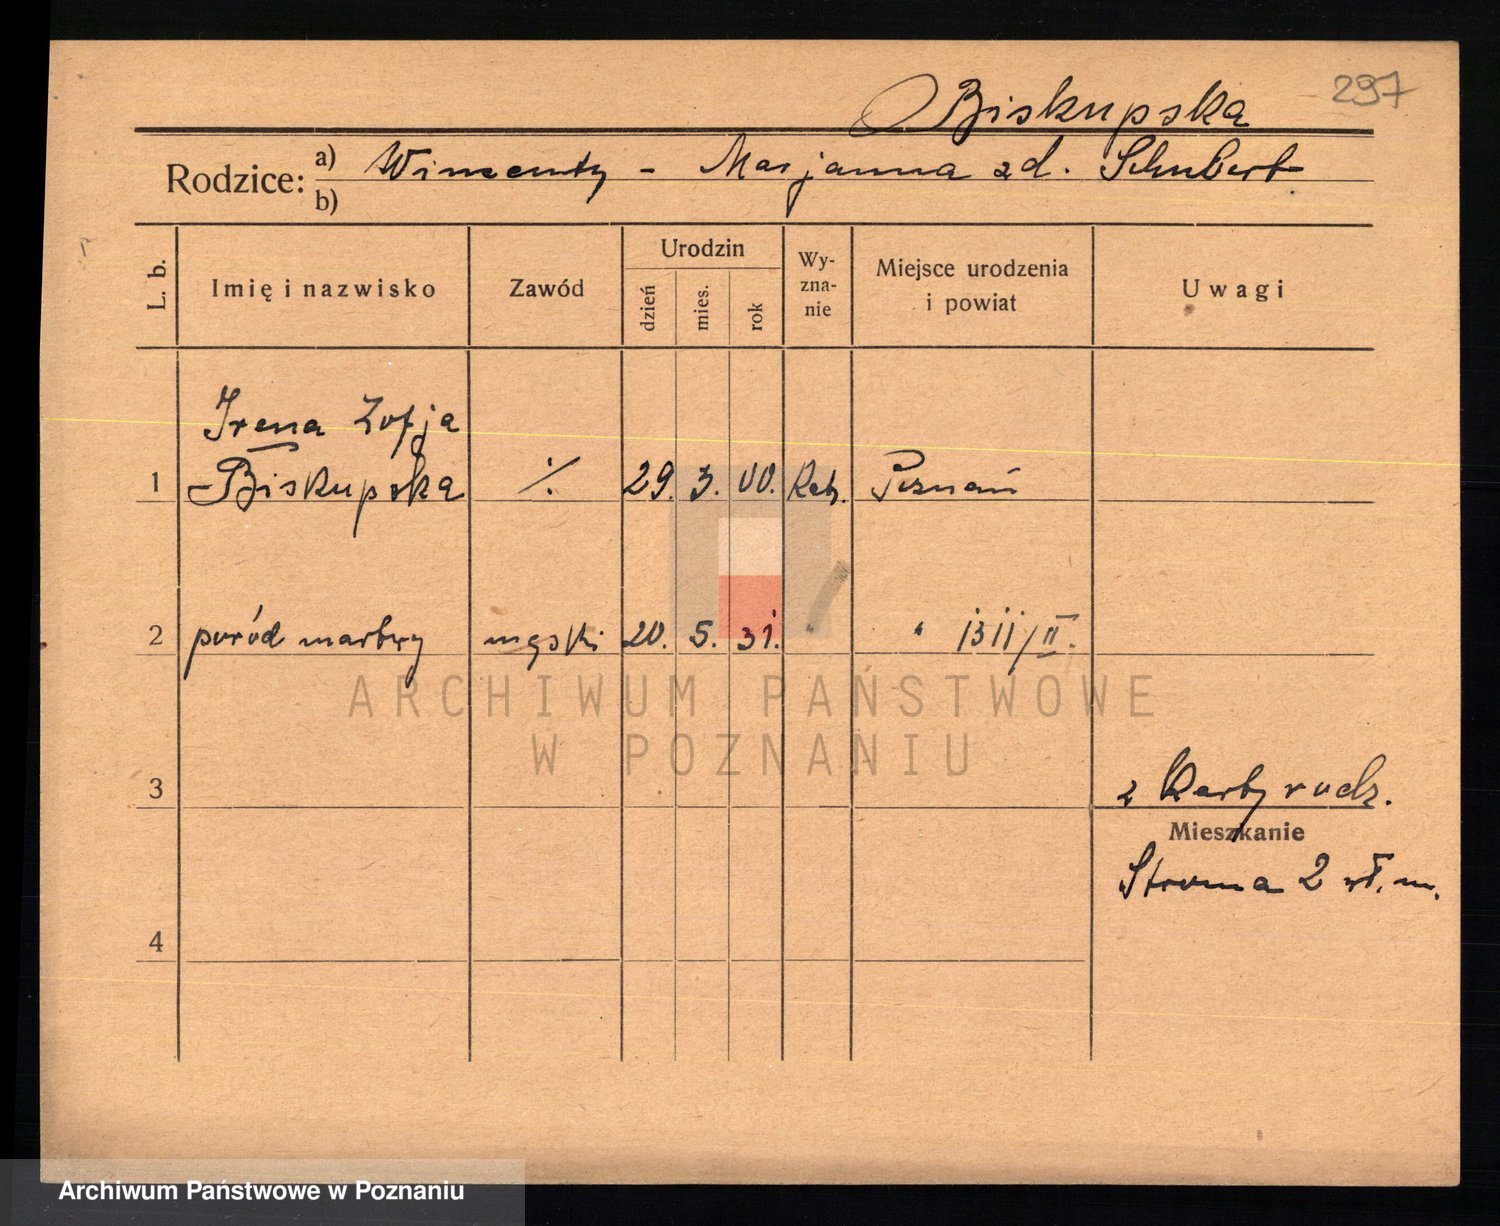 297
Biskupska
Rodzice: a) Wincenty - Marjanna zd. Schubert
b)
L. b. Imię i nazwisko Zawód Urodzin dzień mies. rok Wy-zna-nie Miejsce urodzenia i powiat Uwagi
Irena Zofja
1 Biskupska ·/. 29. 3. 00. Kat. Poznań
2 poród martwy męski 20. 5. 31. " " 1311/II.
ARCHIWUM PAŃSTWOWE
W POZNANIU
3 z Karty rodz.
Mieszkanie
Stroma 2 wł. m.
4
Archiwum Państwowe w Poznaniu